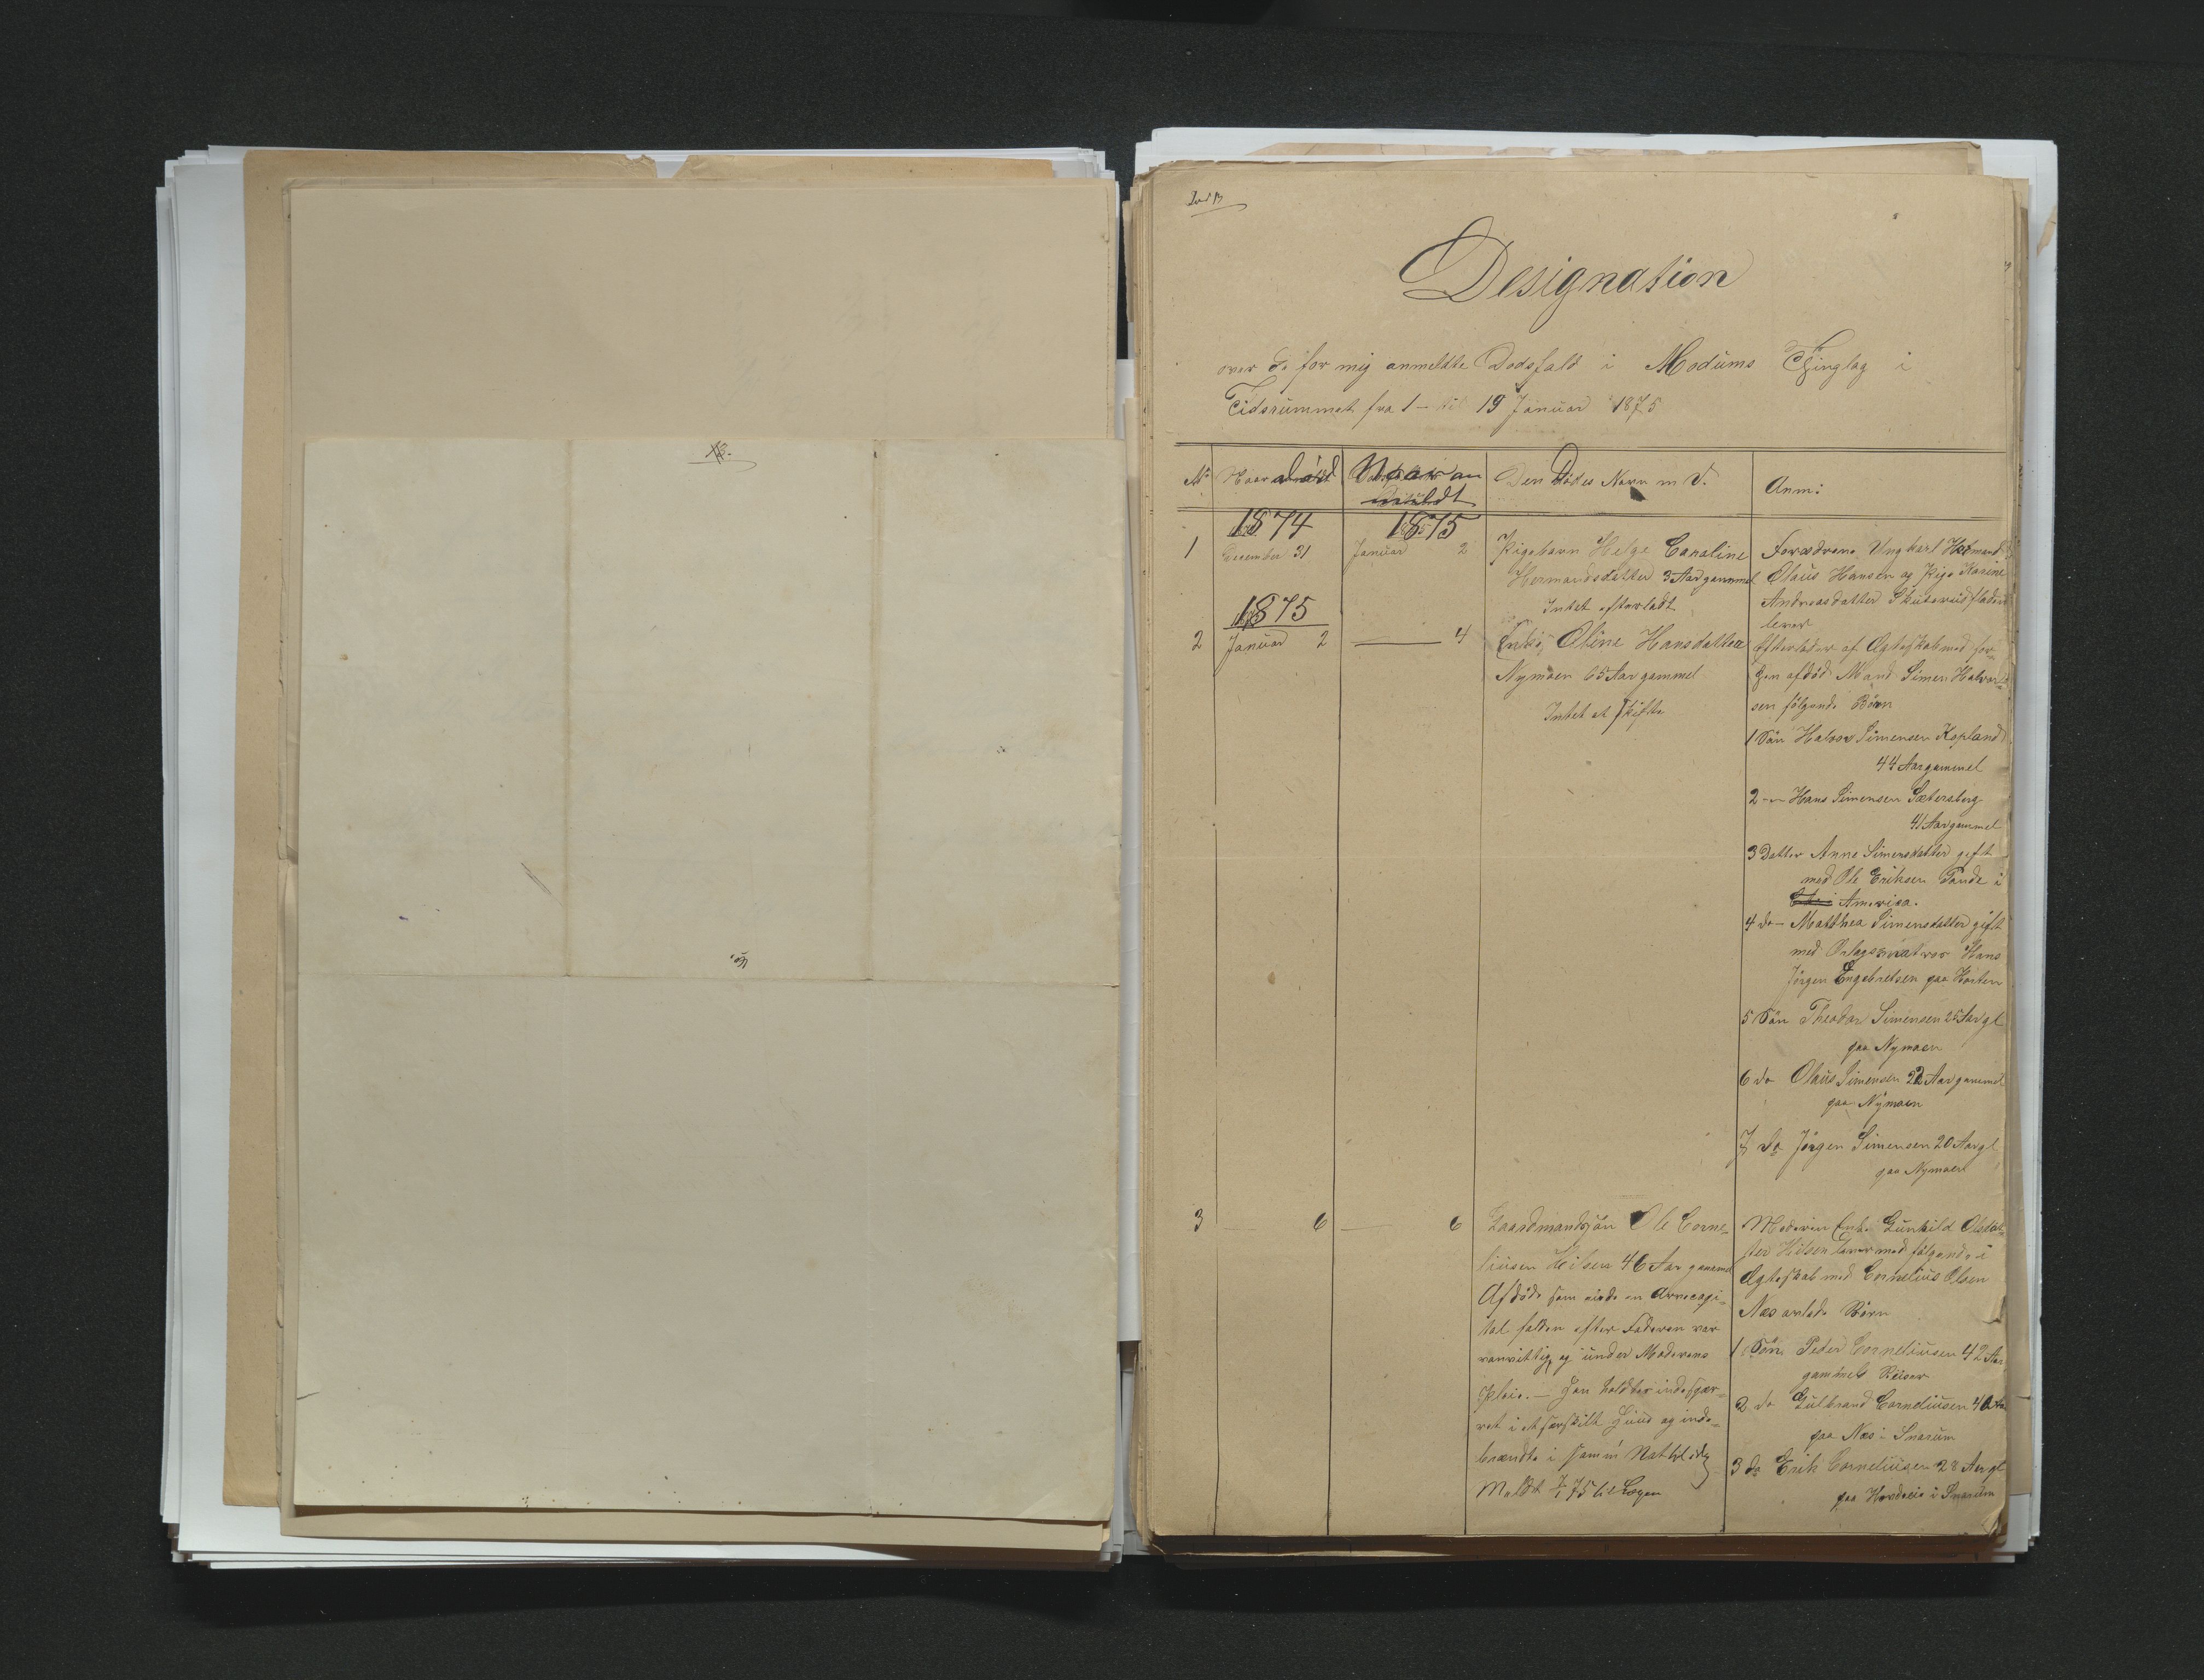 Designation
over de for mig anmeldte Dødsfald i Modums Thinglag i
Tidsrummet fra 1 – til 19 Januar 1875
No Naar død Naar an meldt Den Dødes Navn m V. Anm:
1874 1875
1 December 31 Januar 2 Pigebarn Helge Caroline Forældrene Ungkarl Herman
Hermandsdatter 3 Aar gammel Olaus Hansen og Pige Karine
Intet efterladt Andreasdatter
lever
1875
2 Januar 2 — 4 Enke Oline Hansdatter Efterlader af Ægteskab med for
Nymoen 65 Aar gammel gen afdød Mand Simen Halvor
Intet at skifte sen følgende Børn
1 Søn Halvor Simensen Kopland
44 Aar gammel
2 — Hans Simensen Sætersberg
41 Aar gammel
3 Datter Anne Simensdatter gift
med Ole Eriksen Sande i
America.
4 do – Matthea Simensdatter gift
med Hans
Jørgen Engebretsen paa Horten
5 Søn Theodor Simensen 25 Aar gl
paa Nymoen
6 do Olaus Simensen 22 Aar gammel
paa Nymoen
7 do Jørgen Simensen 20 Aar gl
paa Nymoen
3 — 6 — 6 Gaardmandssøn Ole Corne=
liusen Hilsen 46 Aar gammel
Afdøde som eiede en Arvecapi=
tal falden efter Faderen var
vanvittig og under Moderens
Pleie. – Han holdtes indespær=
ret i et særskilt Huus og inde=
brændte i samme Nat
Meldt 7/1 75 til Lægen
Moderen Enke Gunhild Olsdat=
ter Hilsen lever med følgende i
Ægteskab med Cornelius Olsen
Næs avlede Børn
1 Søn Peder Corneliusen 42 Aar
gammel
2 do Gulbrand Corneliusen 40 Aar
paa Næs i Snarum
3 do Erik Corneliusen 28 Aar gl
paa i Snarum